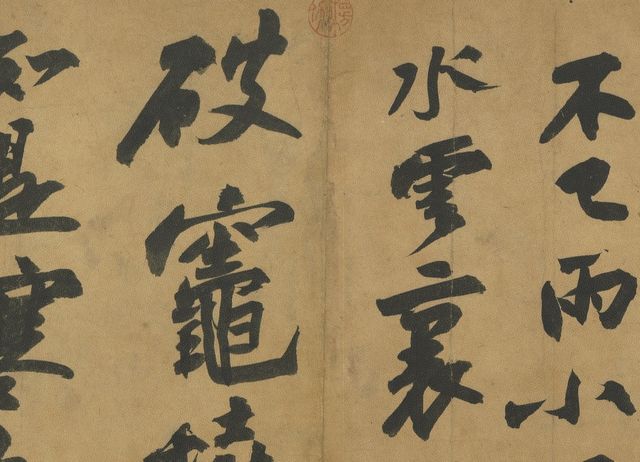 不已雨小
水雲裏
破竈
知是寒